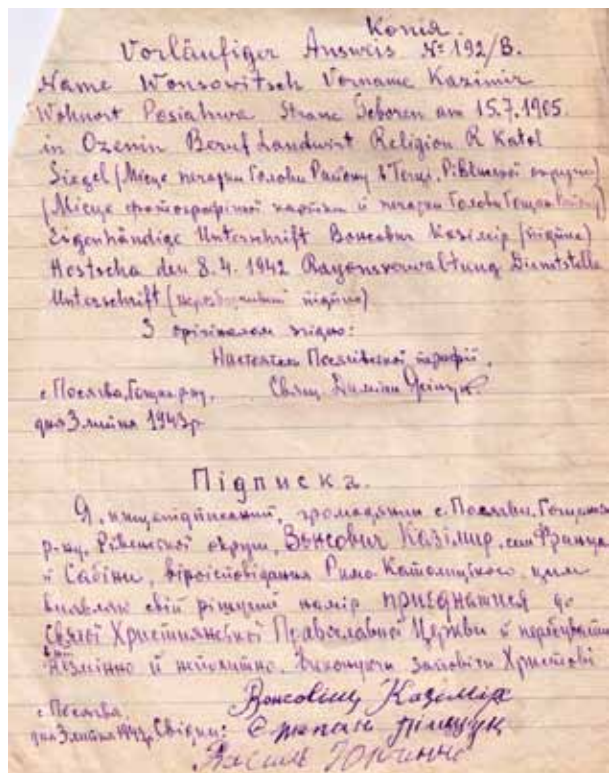 Копія.
Vorläufiger Ausweis № 192/B.
Name Wonsowitsch Vorname Kazimir
Wohnort Posiahwa Strane Geboren am 15.7.1905
in Ozenin Beruf Landwirt Religion R Katol
Siegel (Місце печатки Голови Району в Гощі, Рівенської округи)
(Місце фотографічної картки й печатки Голови Гощан. Району)
Eigenhändige Unterschrift Вонсович Казімір (підпис)
Hostscha den 8.4.1942 Rayonsverwaltung Dienststelle
Unterschrift (підпис)
З оригіналом згідно:
Настоятель Посягівської парафії,
с. Посягва, Гощан. р-ну, Свящ.
дня 3 липня 1943 р.
Підписка.
Я, нищепідписаний, громадянин с. Посягви, Гощанськ.
р-ну, Рівенської округи, Вонсович Казімир, син Франца
й Сабіни, віроісповідання Римо-Католицького, цим
виявляю свій рішучий намір приєднатися до
Святої Християнської Православної Церкви й перебувати
в ній незмінно й неполитно, виконуючи заповіти Христові
Вонсовиц Казімір
с. Посягва,
дня 3 липня 1943 р. Свідки: Степан Ліщук
Василь